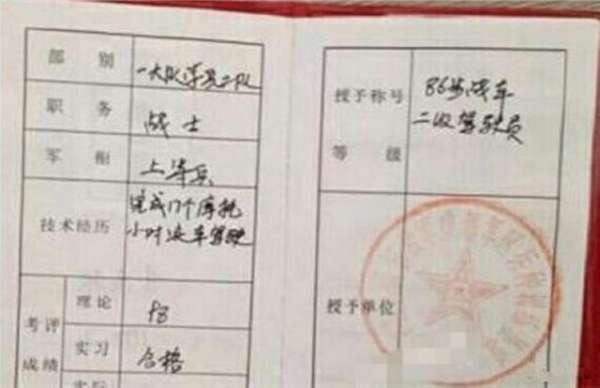 部别
一大队学兵二队
职务
战士
军衔
上等兵
技术经历
完成17个摩托
小时汽车驾驶
考评
成绩
理论
98
实习
合格
实际
授予称号
等级
86步战车
二级驾驶员
授予单位